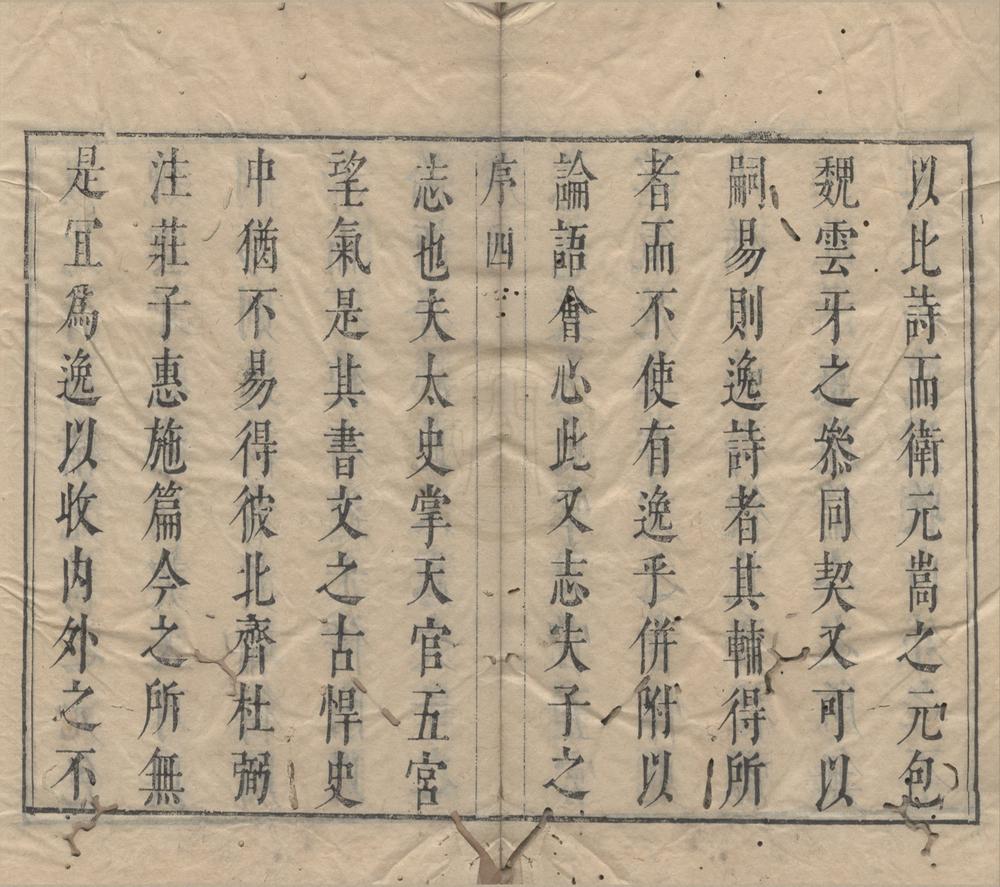 以比詩而衛元嵩之元包
魏雲牙之叅同契又可以
嗣易則逸詩者其輔得所
者而不使有逸乎併附以
論語會心此又志夫子之
序 四
志也夫太史掌天官五宮
望氣是其書文之古悍史
中猶不易得彼北齊杜弼
注莊子惠施篇今之所無
是宜爲逸以收内外之不